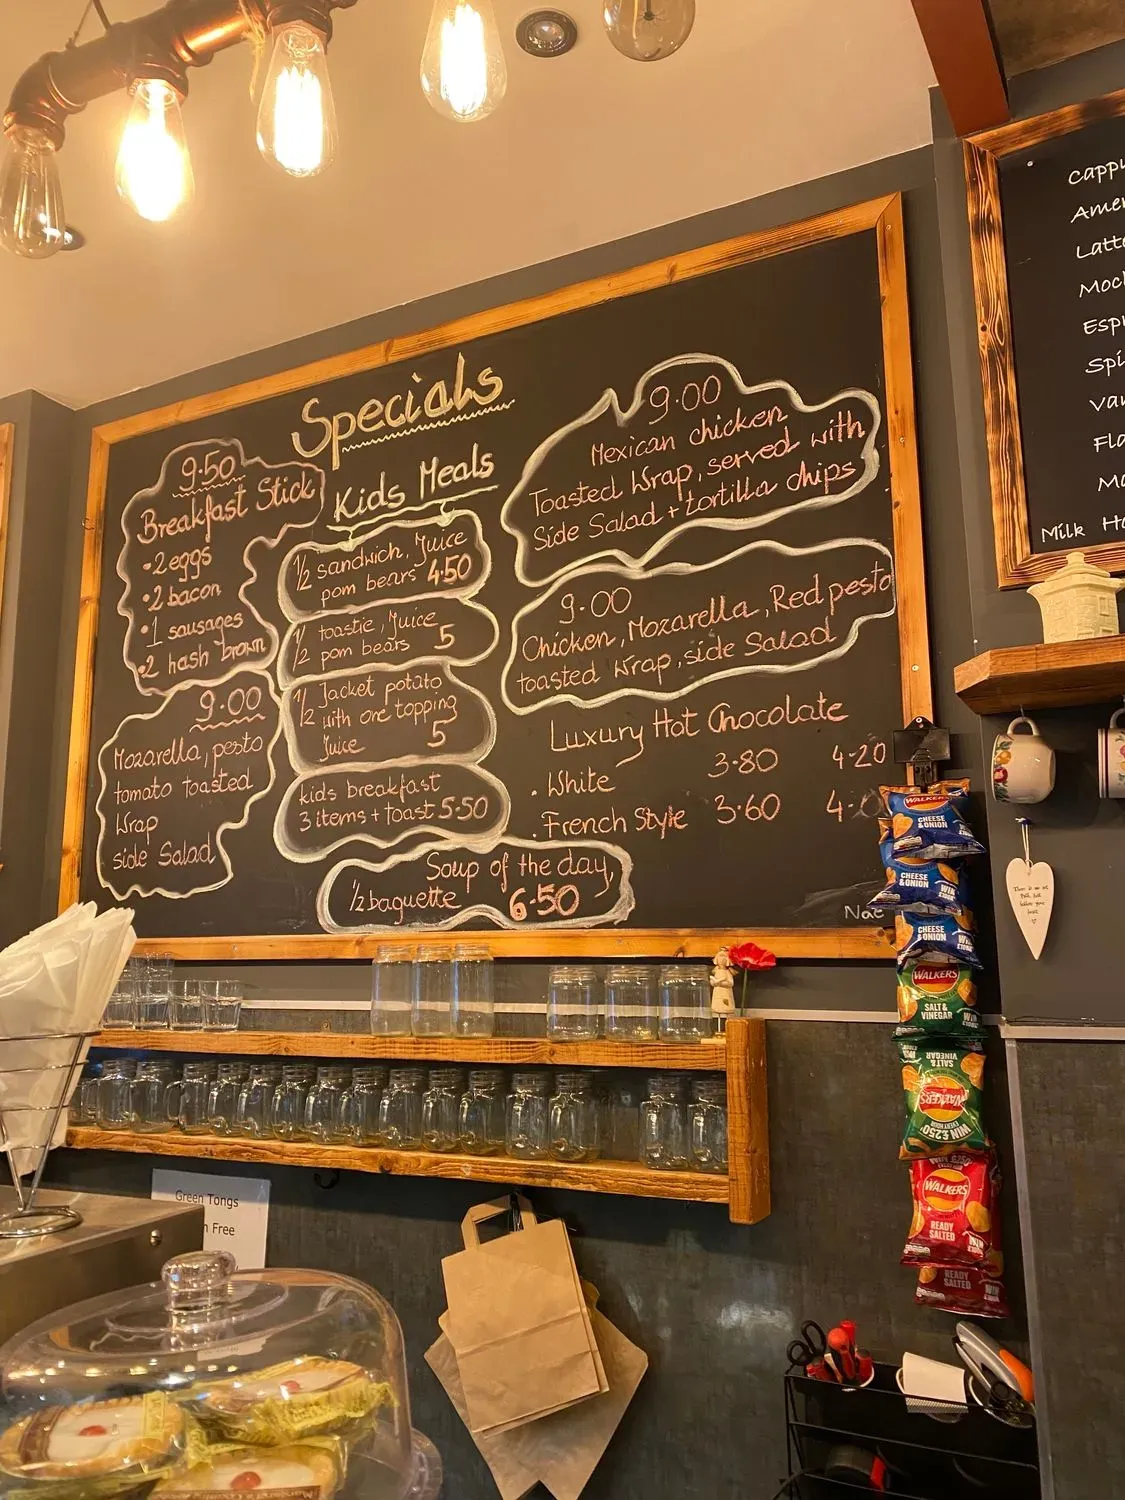 Specials
9.50
Breakfast Stick
• 2 eggs
• 2 bacon
• 1 sausages
• 2 hash brown
9.00
Mozarella, pesto
tomato toasted
Wrap
side Salad
Kids Meals
1/2 sandwich, Juice
pom bears 4.50
1/2 toastie, Juice
pom bears 5
1/2 Jacket potato
with one topping
Juice 5
kids breakfast
3 items + toast 5.50
Soup of the day,
1/2 baguette 6.50
9.00
Mexican chicken
Toasted Wrap, served with
Side Salad + tortilla chips
9.00
Chicken, Mozarella, Red pesto
toasted Wrap, side Salad
Luxury Hot Chocolate
. White 3.80 4.20
. French Style 3.60
Milk
WALKERS
CHEESE
& ONION
CHEESE
& ONION
WIN
CHEESE
& ONION
WALKERS
SALT &
VINEGAR
SALT &
VINEGAR
WALKERS
WIN £250
EVERY HOUR
WALKERS
READY
SALTED
READY
SALTED
Green Tongs
Free